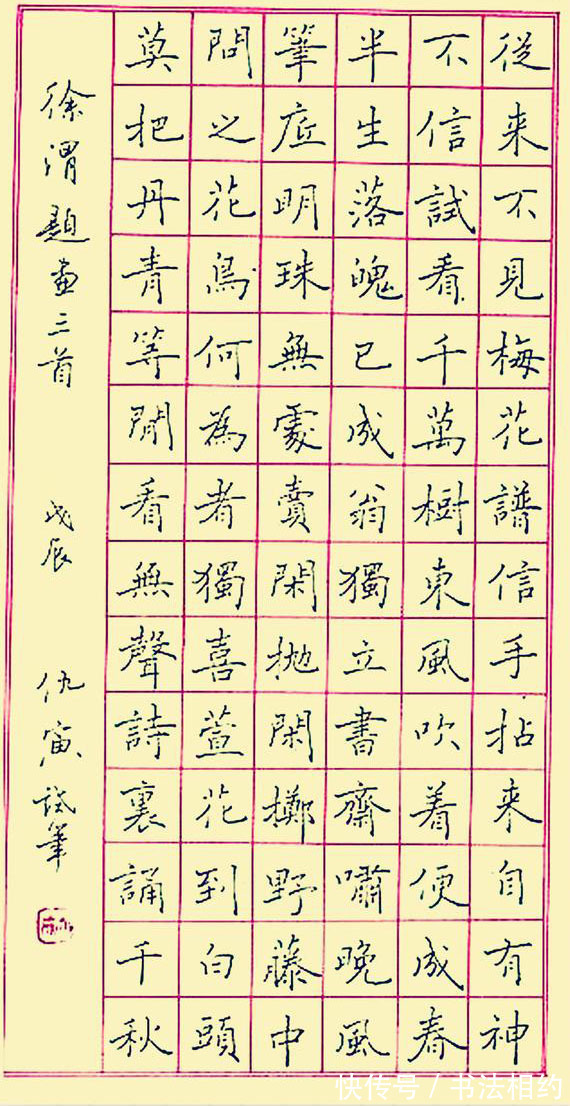 從来不見梅花譜信手拈来自有神
不信試看千萬樹東風吹着便成春
半生落魄已成翁獨立書齋嘯晚風
筆底明珠無處賣閑抛閑擲野藤中
問之花鳥何為者獨喜萱花到白頭
莫把丹青等閒看無聲詩裏誦千秋
徐渭題畫三首 戊辰 仇寅試筆
快传号 / 书法相约